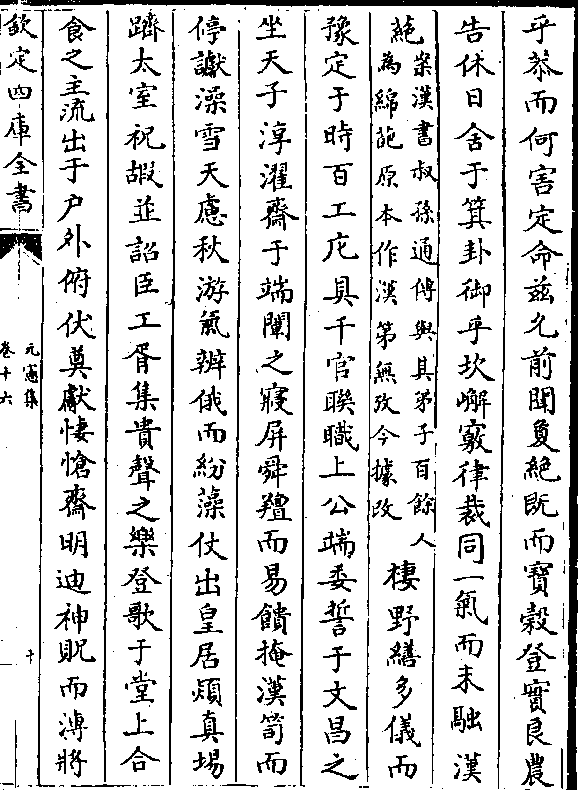 乎恭而何害定命茲允前聞敻絶既而寶穀登實良農
告休日舍于箕卦御乎坎嶰竅律裁同一氣而未融漢
蕝案漢書叔孫通傳與其弟子百餘人
為綿蕝原本作漢第無攷今據改
棲野繕多儀而
豫定于時百工庀具千官聯職上公端委誓于文昌之
坐天子淳濯齋于端闈之寢屏舜羶而易饋掩漢笥而
停讞澡雪天慮秋游氣辨俄而紛藻仗出皇居煩真場
躋太室祝嘏並詔臣工胥集貴聲之樂登歌于堂上合
食之主流出于户外俯伏奠獻悽愴齋明迪神貺而溥將
欽定四庫全書
元憲集
卷十六
十